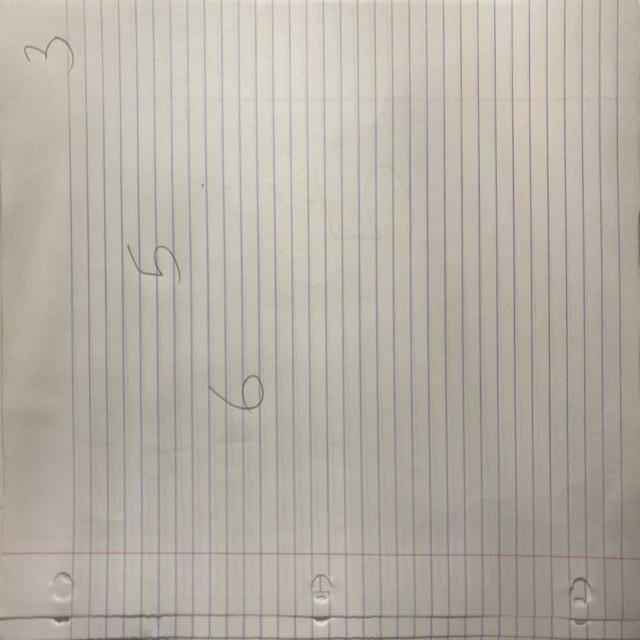 3
5
6